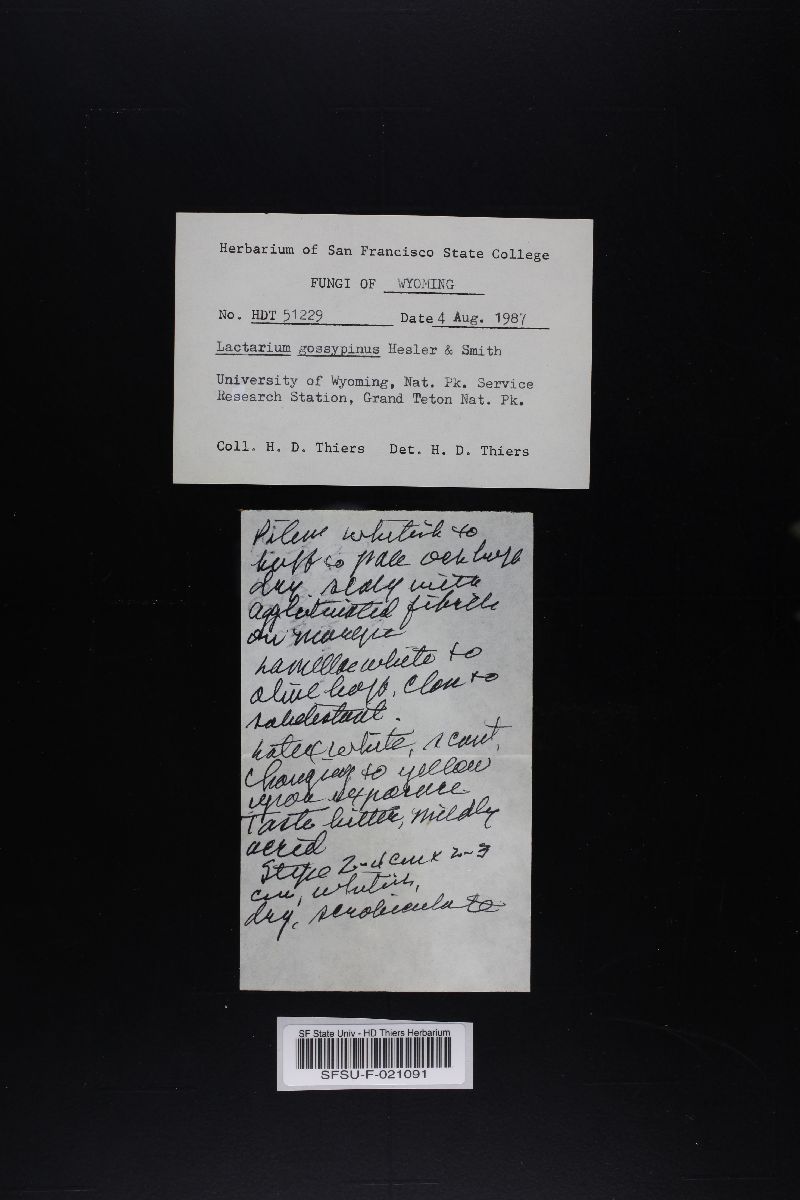 Herbarium of San Francisco State College
FUNGI OF WYOMING
No. HDT 51229 Date 4 Aug. 1987
Lactarium gossypinus Hesler & Smith
University of Wyoming, Nat. Pk. Service
Research Station, Grand Teton Nat. Pk.
Coll. H. D. Thiers Det. H. D. Thiers
Pileus whitish to
buff to pale och buff
dry, scaly with
agglutinated fibrils
on margin
Lamellae white to
olive buff, close to
subdistant.
Latex white, scant,
changing to yellow
upon exposure
Taste bitter, mildly
acrid
Stipe 2-4 cm x 2-3
cm, whitish,
dry, scrobiculate
SF State Univ - HD Thiers Herbarium
SFSU-F-021091